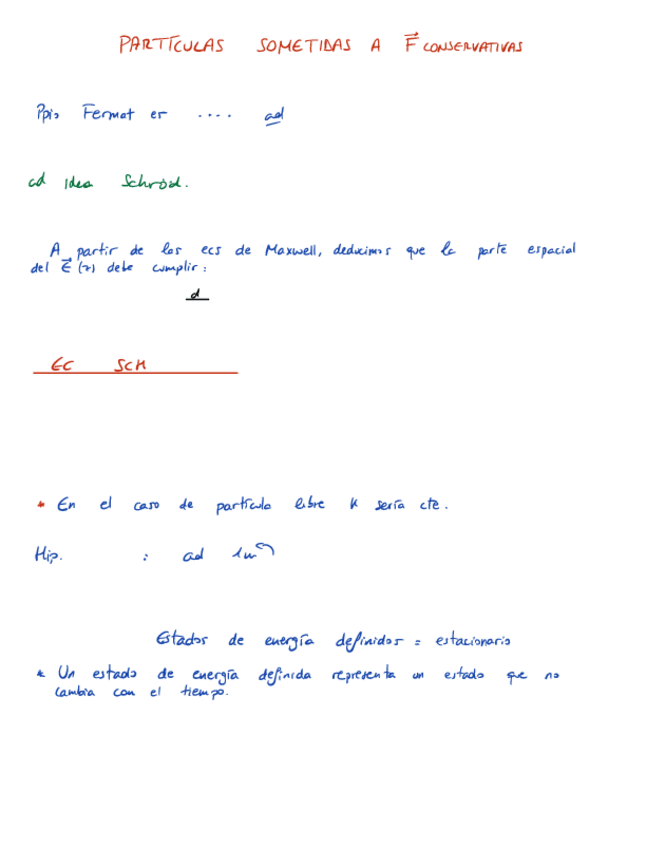 PARTÍCULAS SOMETIDAS A F⃗ CONSERVATIVAS
Ppio Fermat er .... ad
ad Idea Schröd.
A partir de las ecs de Maxwell, deducimos que la parte espacial
del E⃗ (r) debe cumplir :
d
EC SCH
* En el caso de partícula libre K sería cte.
Hip. : ad
Estados de energía definidos = estacionario
* Un estado de energía definida representa un estado que no
cambia con el tiempo.